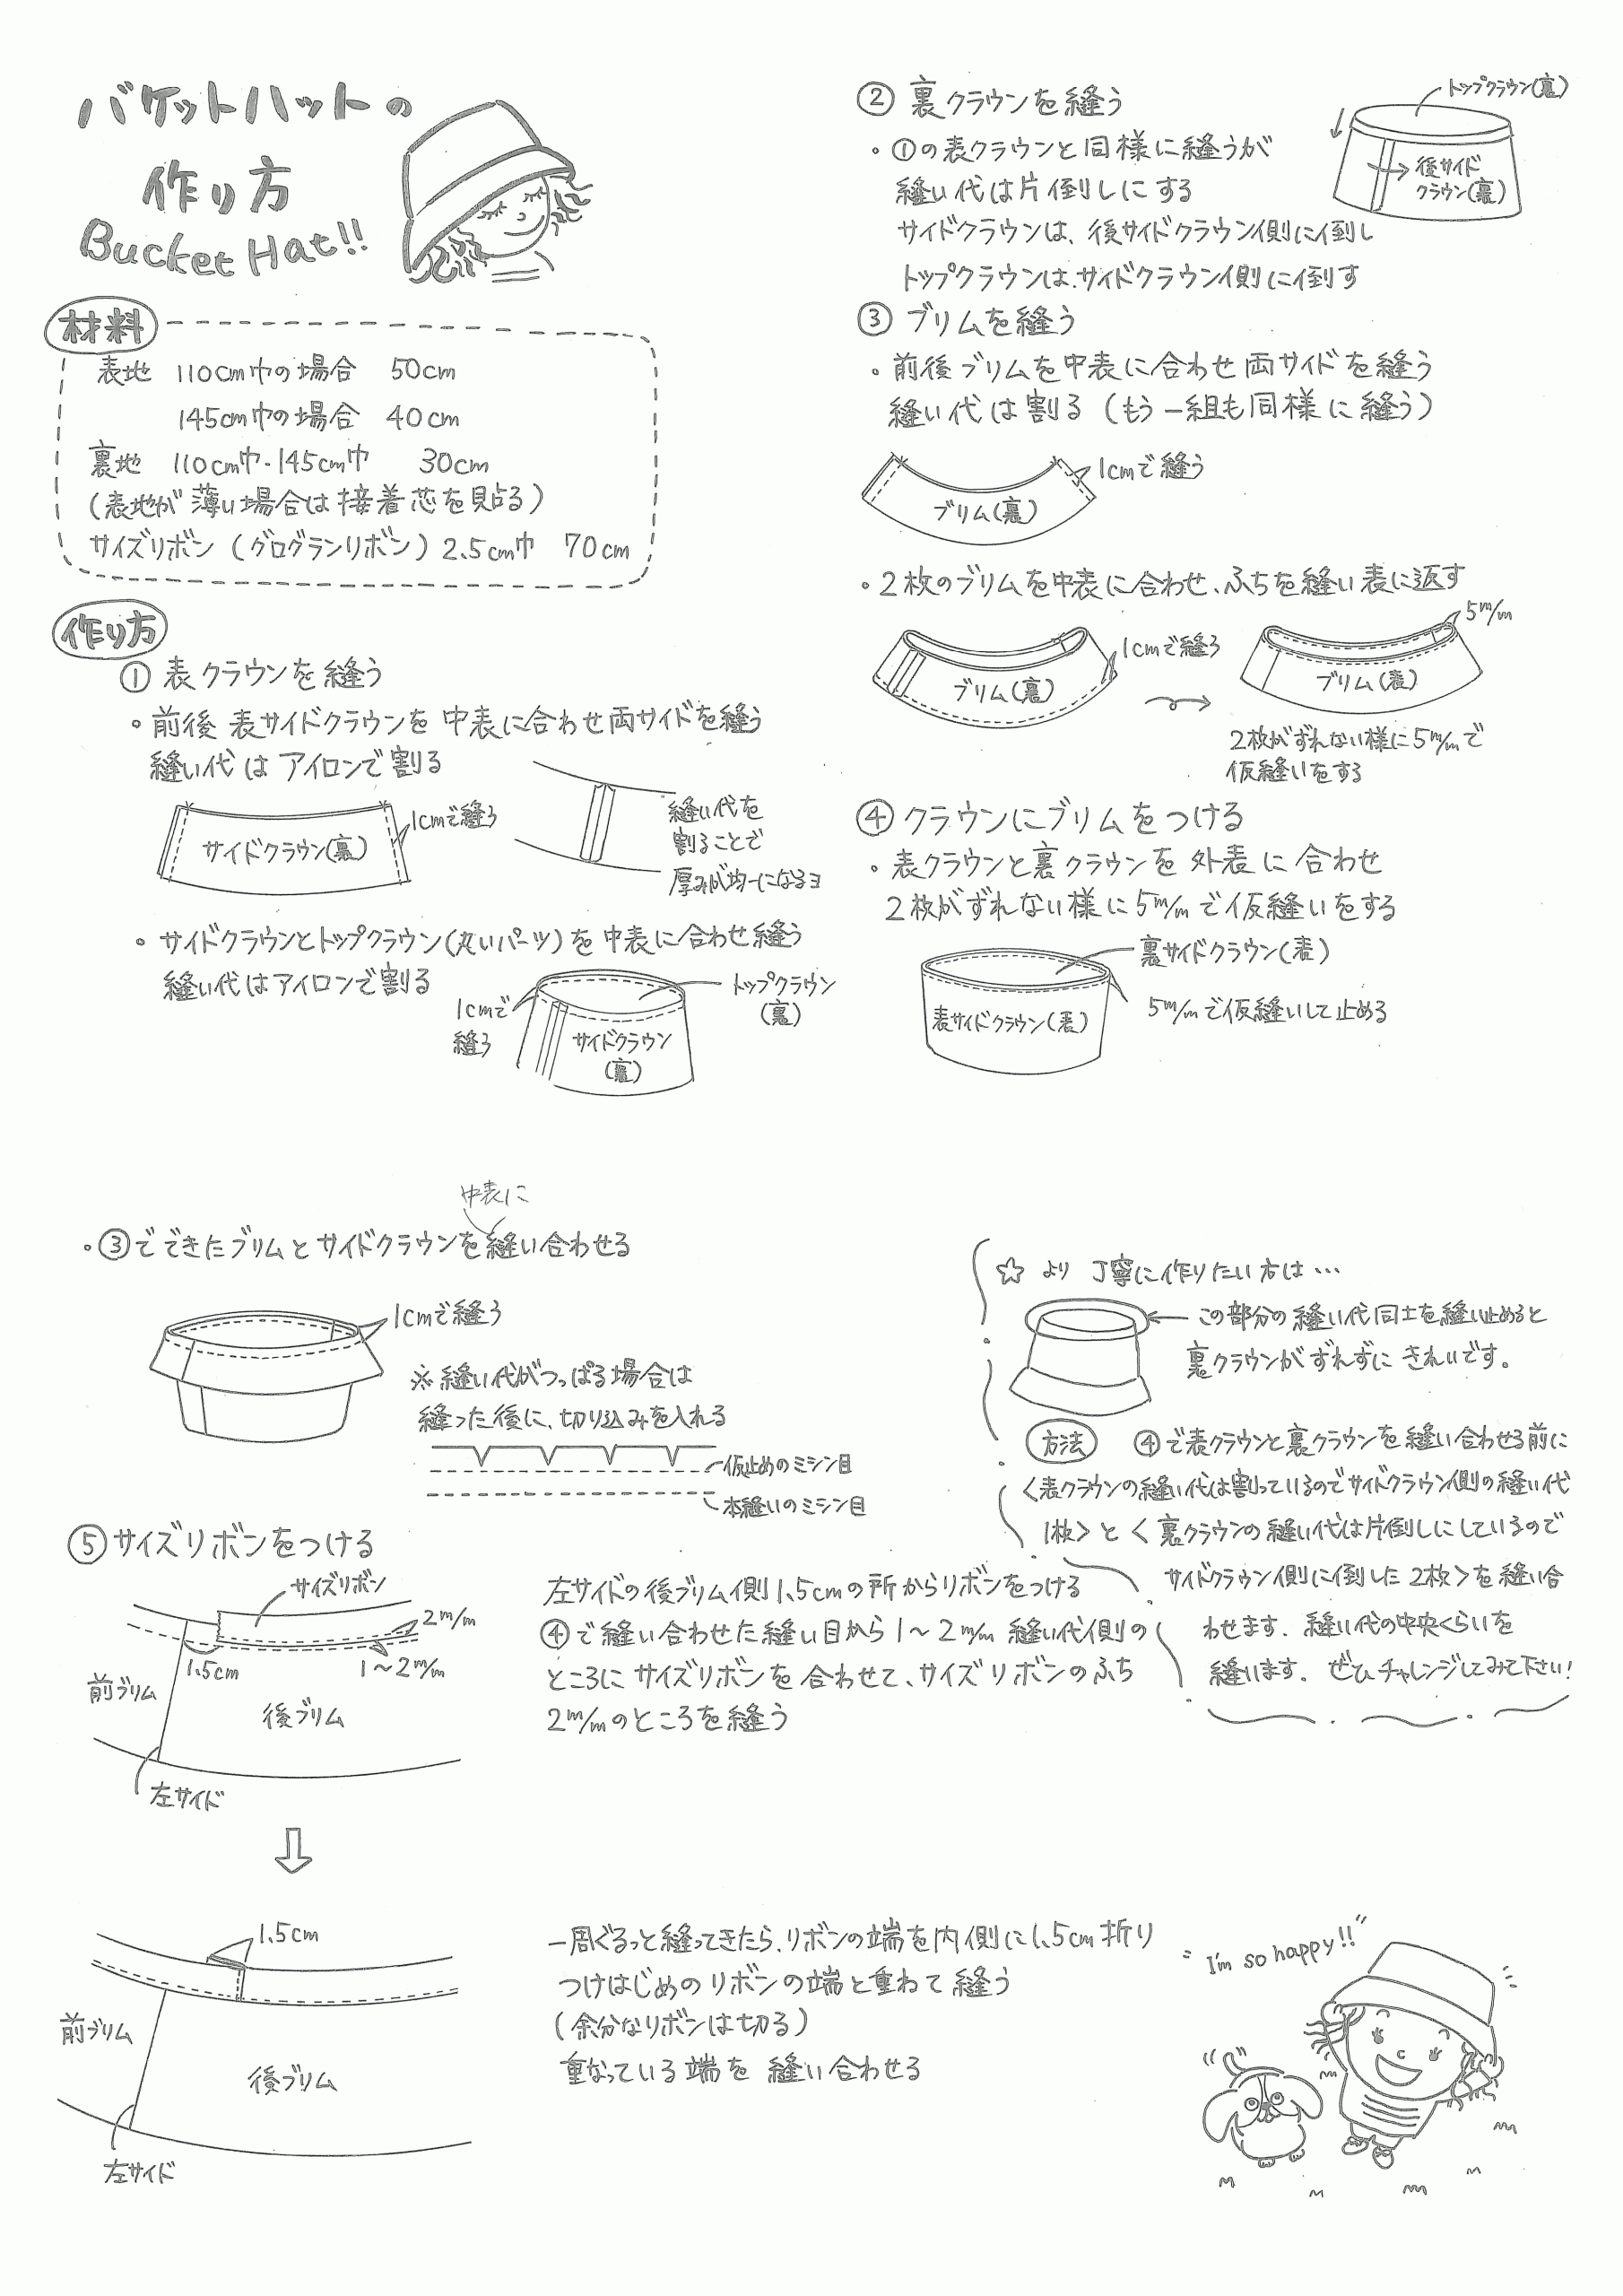 バケットハットの
作り方
Bucket Hat!!
材料
表地 110cm巾の場合 50cm
145cm巾の場合 40cm
裏地 110cm巾・145cm巾 30cm
(表地が薄い場合は接着芯を貼る)
サイズリボン (グログランリボン) 2.5cm巾 70cm
作り方
① 表クラウンを縫う
・前後 表サイドクラウンを中表に合わせ両サイドを縫う
縫い代は アイロンで割る
サイドクラウン(裏)
1cmで縫う
縫い代を
割ることで
厚みが均一になるヨ
・サイドクラウンとトップクラウン(丸いパーツ)を中表に合わせ縫う
縫い代はアイロンで割る
1cmで
縫う
トップクラウン
(裏)
サイドクラウン
(裏)
② 裏クラウンを縫う
・①の表クラウンと同様に縫うが
縫い代は片倒しにする
サイドクラウンは、後サイドクラウン側に倒し
トップクラウンは、サイドクラウン側に倒す
トップクラウン(裏)
後サイド
クラウン(裏)
③ ブリムを縫う
・前後ブリムを中表に合わせ両サイドを縫う
縫い代は割る (もう一組も同様に縫う)
1cmで縫う
ブリム(裏)
・2枚のブリムを中表に合わせ、ふちを縫い表に返す
1cmで縫う
ブリム(裏)
5m/m
ブリム(表)
2枚がずれない様に5m/mで
仮縫いをする
④ クラウンにブリムをつける
・表クラウンと裏クラウンを外表に合わせ
2枚がずれない様に5m/mで仮縫いをする
裏サイドクラウン(表)
表サイドクラウン(表)
5m/mで仮縫いして止める
中表に
・③でできたブリムとサイドクラウンを縫い合わせる
1cmで縫う
※縫い代がつっぱる場合は
縫った後に、切り込みを入れる
仮止めのミシン目
本縫いのミシン目
☆ より 丁寧に作りたい方は…
この部分の縫い代同士を縫い止めると
裏クラウンがずれずに きれいです。
方法 ④で表クラウンと裏クラウンを縫い合わせる前に
<表クラウンの縫い代は割っているのでサイドクラウン側の縫い代
1枚>と<裏クラウンの縫い代は片倒しにしているので
サイドクラウン側に倒した2枚>を縫い合
わせます. 縫い代の中央くらいを
縫います. ぜひチャレンジしてみて下さい!
⑤サイズリボンをつける
サイズリボン
2m/m
1.5cm
1〜2m/m
前ブリム
後ブリム
左サイド
左サイドの後ブリム側1.5cmの所からリボンをつける
④で縫い合わせた縫い目から1〜2m/m 縫い代側の
ところにサイズリボンを合わせて、サイズリボンのふち
2m/mのところを縫う
1.5cm
前ブリム
後ブリム
左サイド
一周ぐるっと縫ってきたら、リボンの端を内側に1.5cm折り
つけはじめのリボンの端と重ねて縫う
(余分なリボンは切る)
重なっている端を縫い合わせる
"I'm so happy!!"